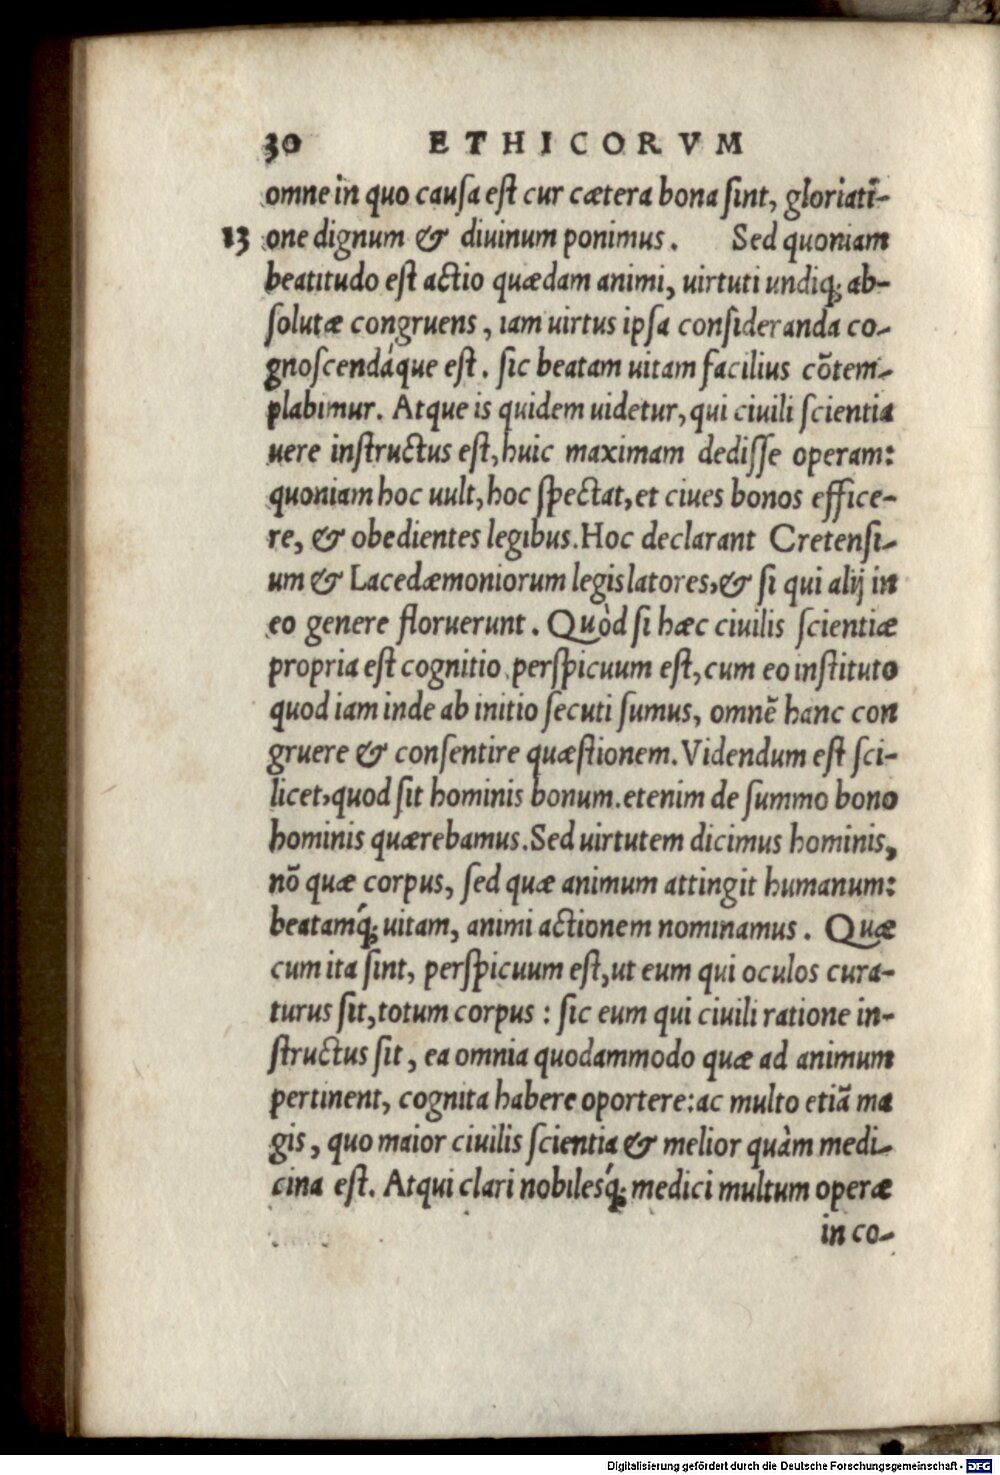 30 ETHICORVM
omne in quo cauſa eſt cur cætera bona ſint, gloriati-
13 one dignum & diuinum ponimus. Sed quoniam
beatitudo eſt actio quædam animi, uirtuti undiq; ab-
ſolutæ congruens, iam uirtus ipſa conſideranda co-
gnoſcendáque eſt. ſic beatam uitam facilius cōtem-
plabimur. Atque is quidem uidetur, qui ciuili ſcientia
uere inſtructus eſt, huic maximam dediſſe operam:
quoniam hoc uult, hoc ſpectat, et ciues bonos effice-
re, & obedientes legibus. Hoc declarant Cretenſi-
um & Lacedæmoniorum legislatores, & ſi qui alij in
eo genere floruerunt. Quòd ſi hæc ciuilis ſcientiæ
propria eſt cognitio, perſpicuum eſt, cum eo inſtituto
quod iam inde ab initio ſecuti ſumus, omnē hanc con
gruere & conſentire quæſtionem. Videndum eſt ſci-
licet, quod ſit hominis bonum. etenim de ſummo bono
hominis quærebamus. Sed uirtutem dicimus hominis,
nō quæ corpus, ſed quæ animum attingit humanum:
beatamq́; uitam, animi actionem nominamus. Quæ
cum ita ſint, perſpicuum eſt, ut eum qui oculos cura-
turus ſit, totum corpus: ſic eum qui ciuili ratione in-
ſtructus ſit, ea omnia quodammodo quæ ad animum
pertinent, cognita habere oportere: ac multo etiā ma
gis, quo maior ciuilis ſcientia & melior quàm medi-
cina eſt. Atqui clari nobilesq́; medici multum operæ
in co-
Digitalisierung gefördert durch die Deutsche Forschungsgemeinschaft - DFG